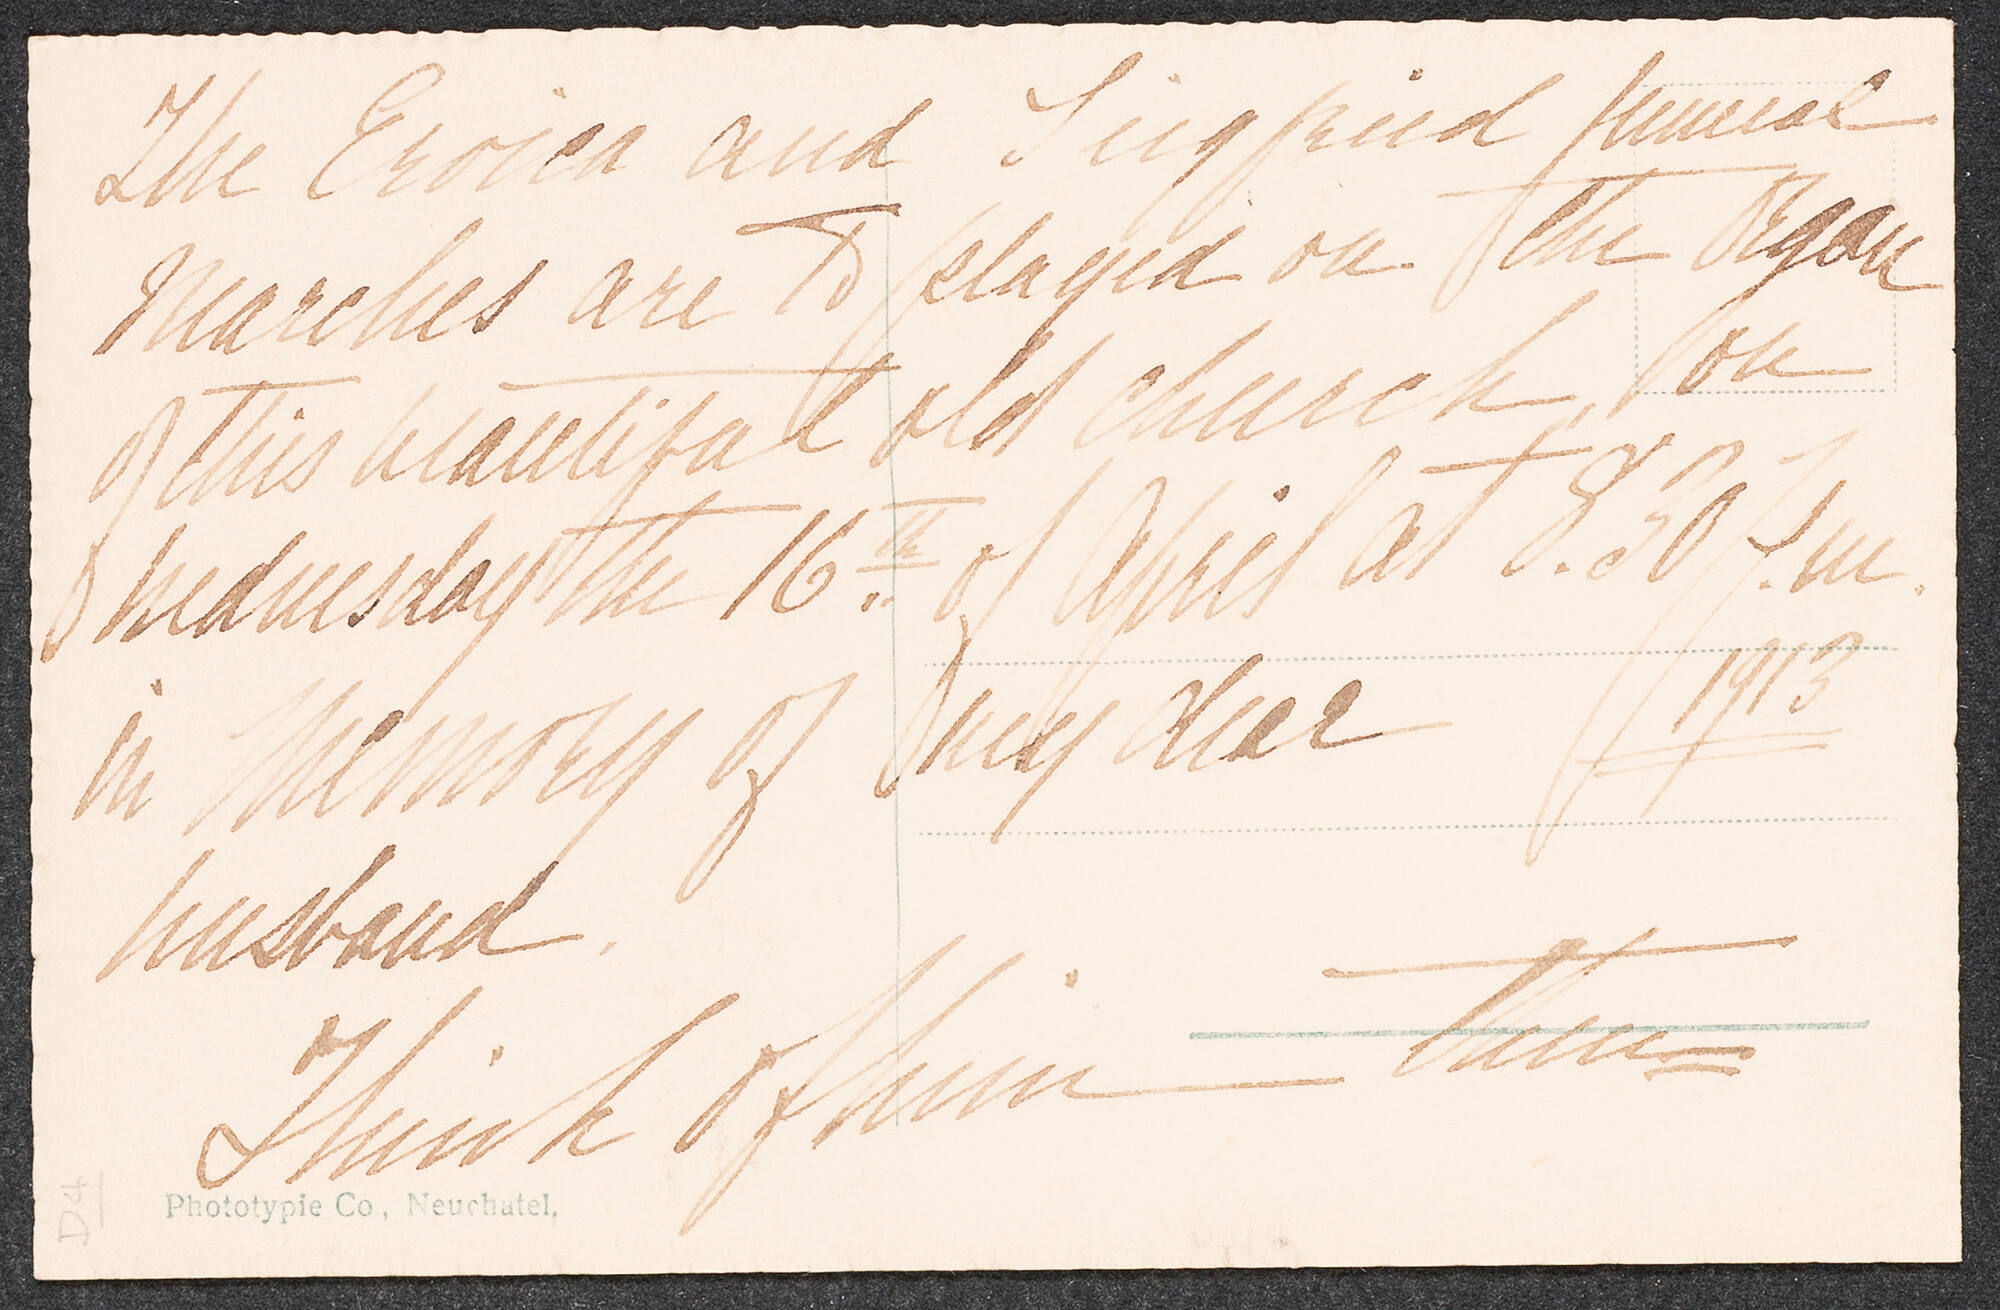 The Eroica and Siegfried funeral
Marches are to played on the Organ
of this beautiful old church, on
Wednesday the 16th of April at 8.30 p.m.
in Memory of my dear 1913
husband.
Think of him — then
Phototypie Co., Neuchatel.
D4